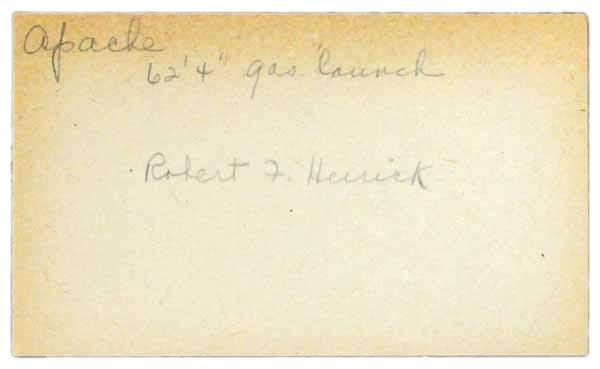 Apache
62'4" gas launch
Robert F. Herrick